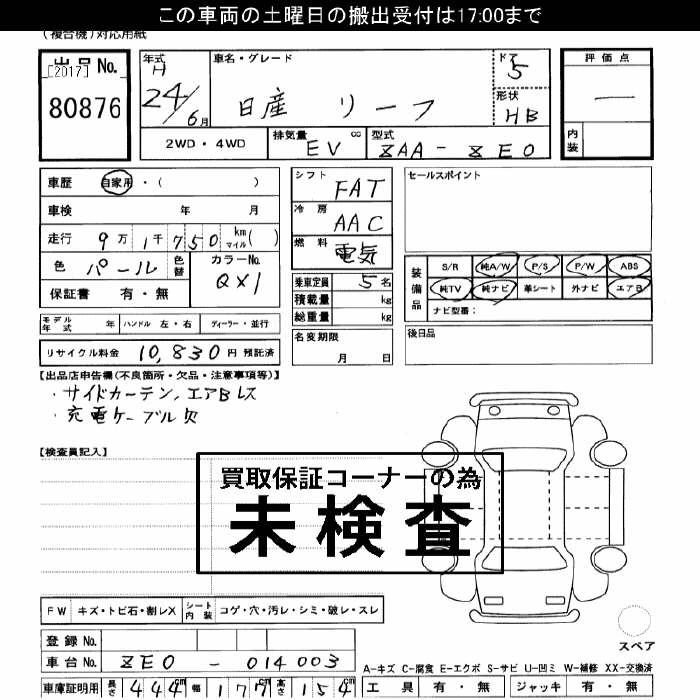 この車両の土曜日の搬出受付は17:00まで
(複合機)対応用紙
出品No.
[2017]
80876
年式
H
24/6月
車名・グレード
日産 リーフ
ドア
5
形状
HB
評価点
—
内装
2WD・4WD
排気量
cc
EV
型式
ZAA-ZE0
車歴 自家用・( )
車検 年 月
走行 9万1千750 km マイル( )
色 パール 色替
カラーNo.
QX1
保証書 有・無
シフト FAT
冷房 AAC
燃料 電気
乗車定員 5名
積載量 kg
総重量 kg
セールスポイント
装備品
S/R 純A/W P/S P/W ABS
純TV 純ナビ 革シート 外ナビ エアB
ナビ型番:
モデル年式 年 ハンドル 左・右 ディーラー・並行
名変期限
月 日
後日品
リサイクル料金 10,830 円 預託済
【出品店申告欄(不良箇所・欠品・注意事項等)】
・サイドカーテン,エアBレス
・充電ケーブル欠
【検査員記入】
買取保証コーナーの為
未検査
FW キズ・トビ石・割レX シート内装 コゲ・穴・汚レ・シミ・破レ・スレ
スペア
登録No.
車台No. ZE0-014003
A-キズ C-腐食 E-エクボ S-サビ U-凹ミ W-補修 XX-交換済
車庫証明用 長さ 444cm 幅 177cm 高さ 154cm
工具 有・無 ジャッキ 有・無